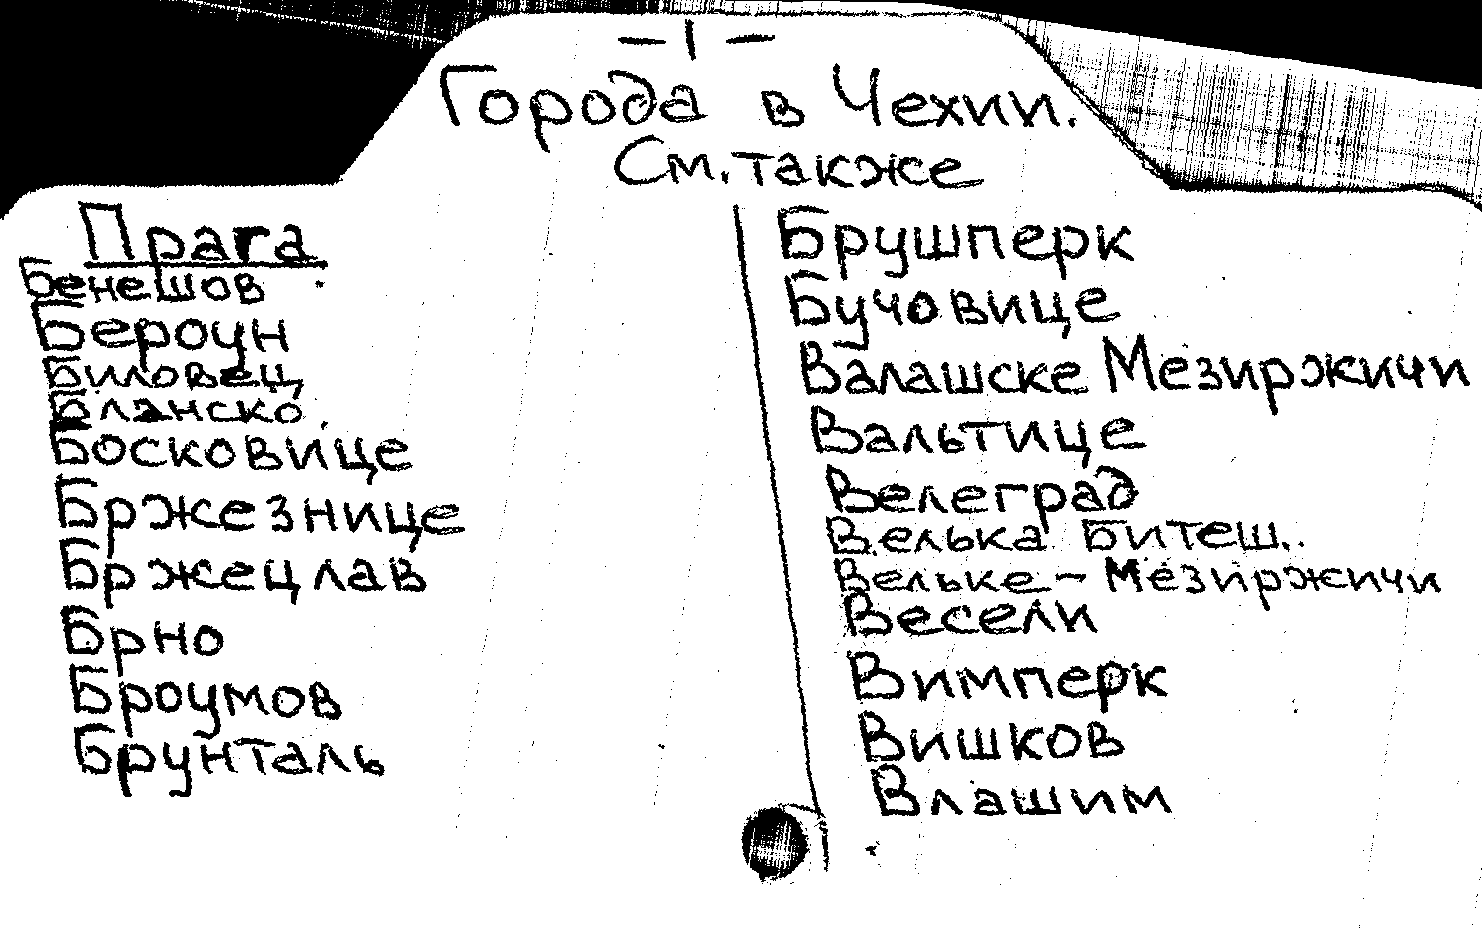 – 1 –
Города в Чехии.
См. также
Прага
Бенешов
Бероун
Биловец
Бланско
Босковице
Бржезнице
Бржецлав
Брно
Броумов
Брунталь
Брушперк
Бучовице
Валашске Мезиржичи
Вальтице
Велеград
Велька Битеш..
Вельке – Мезиржичи
Весели
Вимперк
Вишков
Влашим